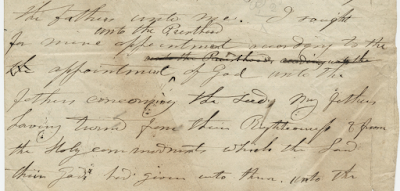 the fathers unto me. I sought
unto the Priesthood
for mine appointment according to the
the appointment of God unto the
Fathers concerning the seed my fathers
having turned from their Righteousness & from
the Holy commandments which the Lord
their God had given unto them unto the